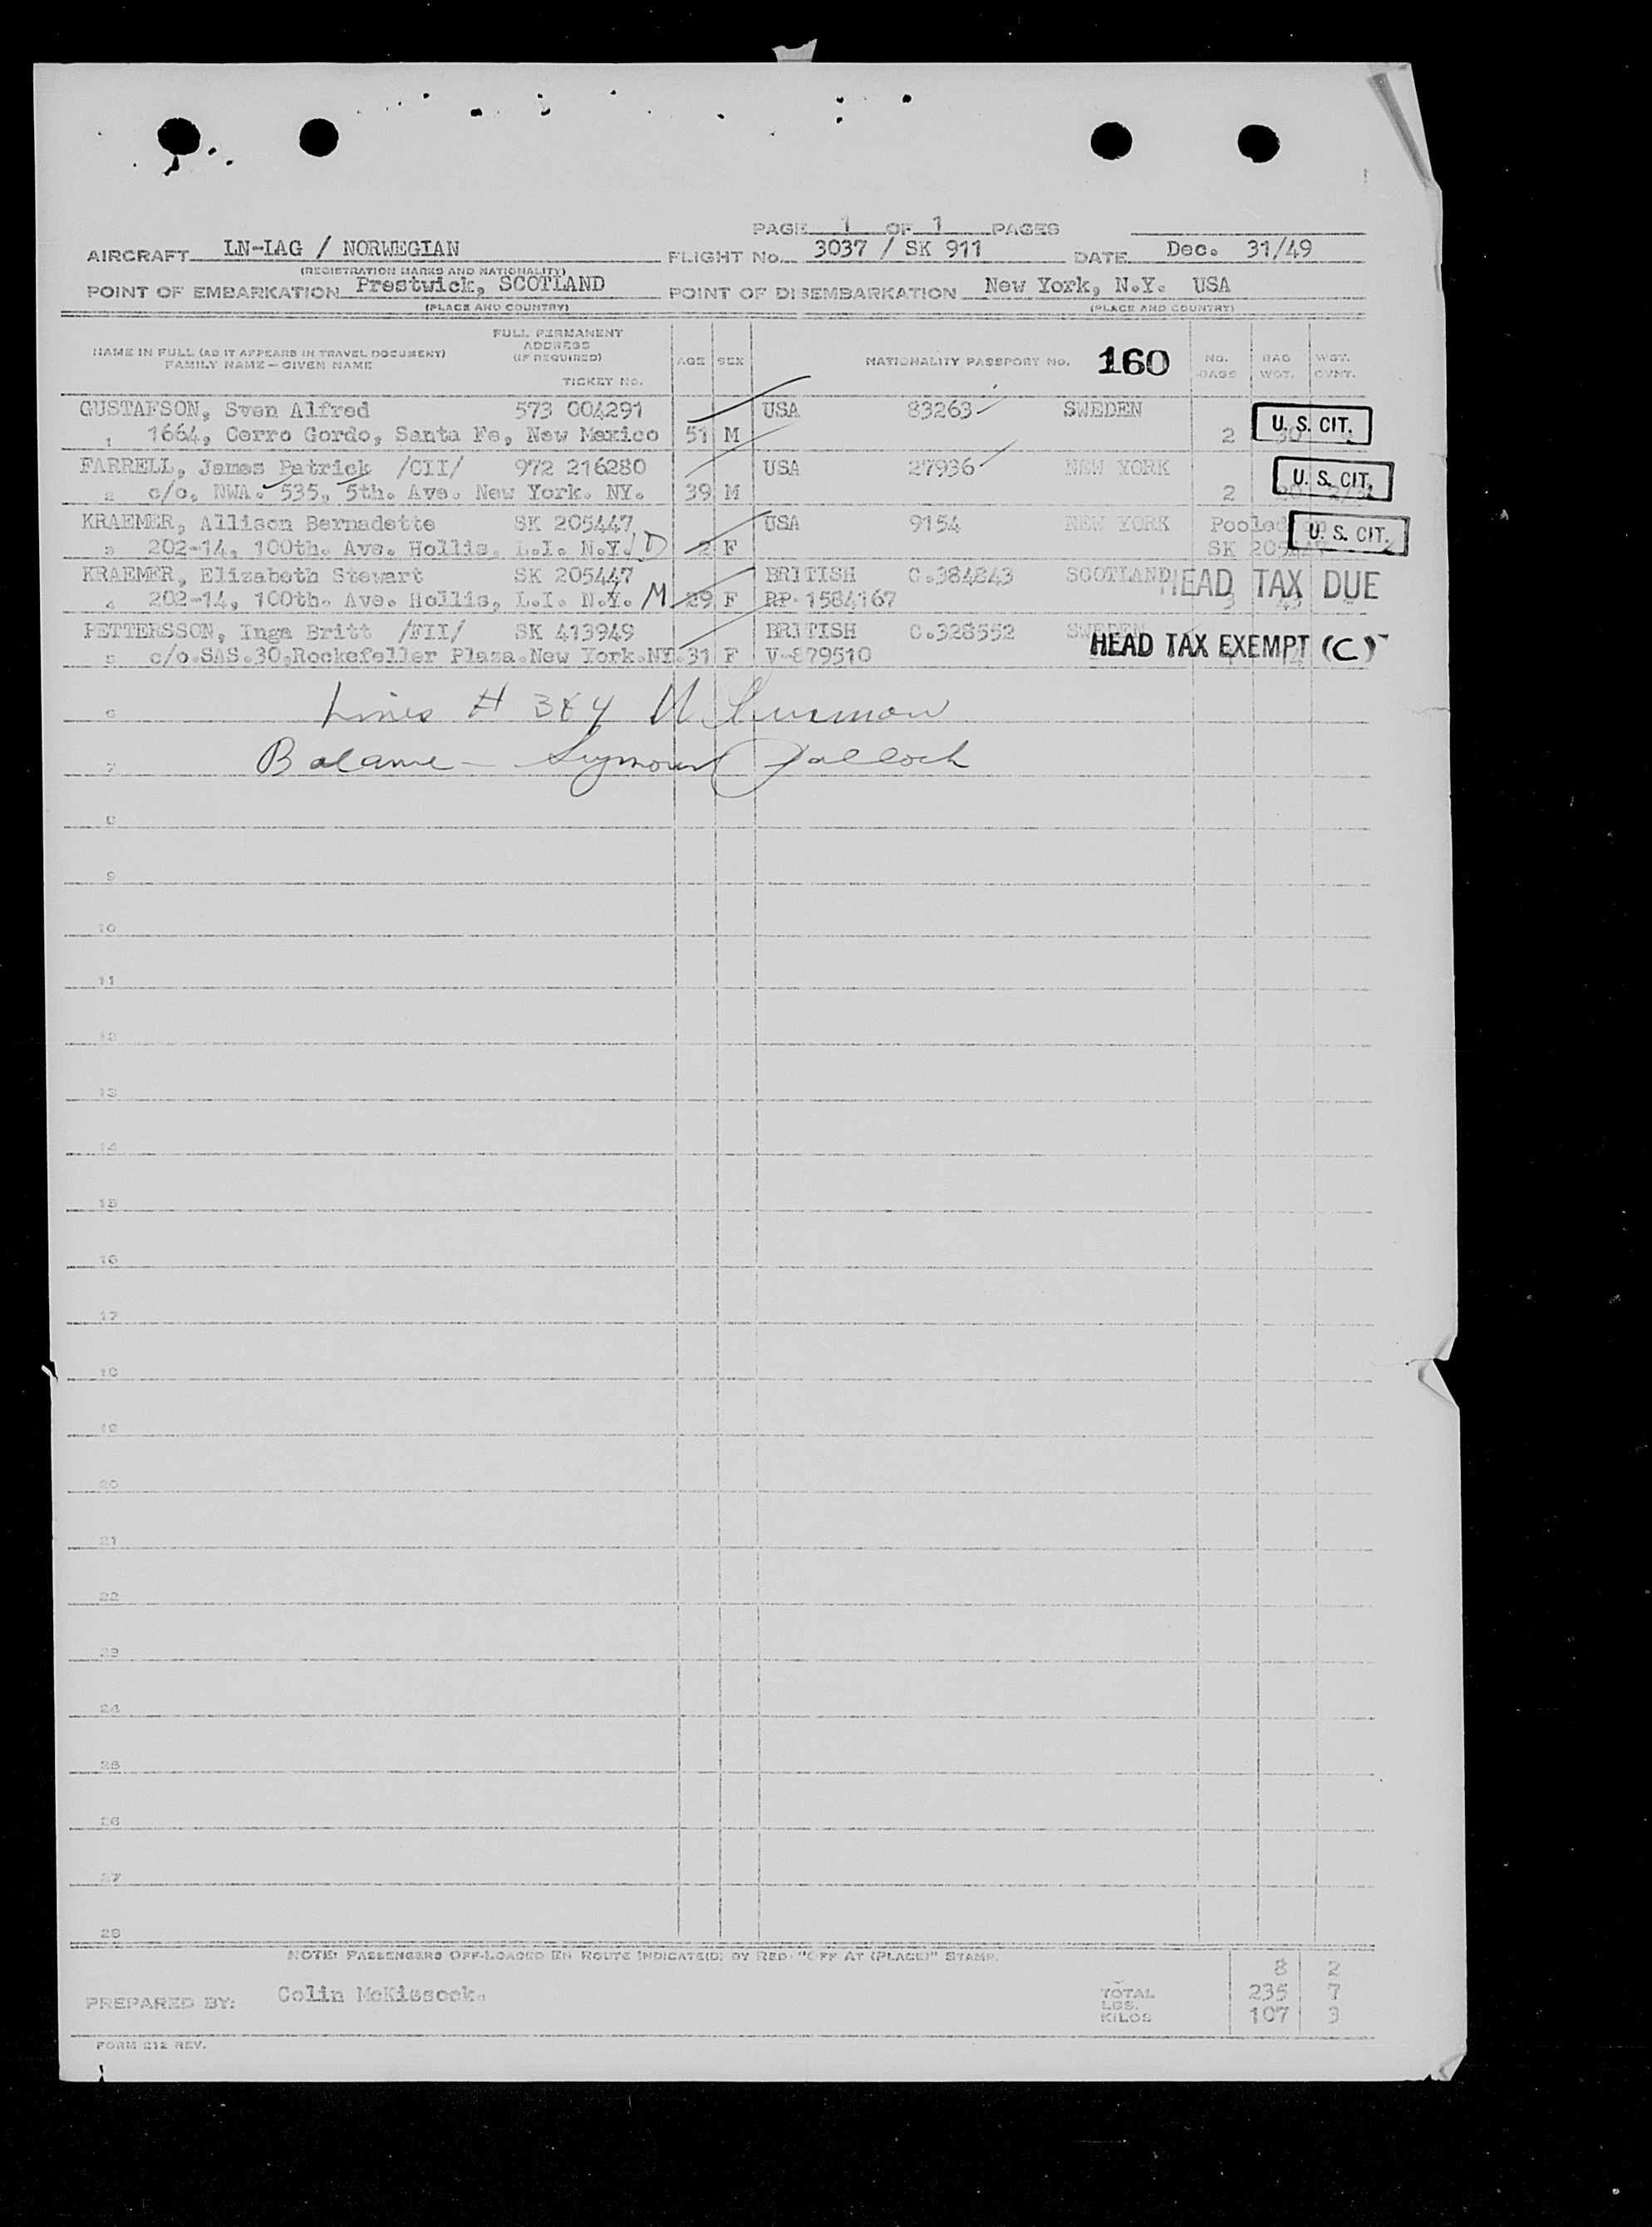 PAGE 1 OF 1 PAGES
AIRCRAFT LN-IAG / NORWEGIAN FLIGHT No. 3037 / SK 911 DATE Dec. 31/49
(REGISTRATION MARKS AND NATIONALITY)
POINT OF EMBARKATION Prestwick, SCOTLAND POINT OF DISEMBARKATION New York, N.Y. USA
(PLACE AND COUNTRY) (PLACE AND COUNTRY)
NAME IN FULL (AS IT APPEARS IN TRAVEL DOCUMENT) FAMILY NAME — GIVEN NAME
FULL PERMANENT ADDRESS (IF REQUIRED) TICKET No.
AGE SEX NATIONALITY PASSPORT No. 160 No. BAGS BAG WGT. WGT. OVNT.
GUSTAFSON, Sven Alfred 573 004291 USA 83263 SWEDEN U. S. CIT.
1 1664, Cerro Gordo, Santa Fe, New Mexico 51 M 2
FARRELL, James Patrick /CII/ 972 216280 USA 27936 NEW YORK U. S. CIT.
2 c/o. NWA. 535, 5th. Ave. New York. NY. 39 M 2
KRAEMER, Allison Bernadette SK 205447 USA 9154 NEW YORK Pooled U. S. CIT.
3 202-14, 100th. Ave. Hollis, L.I. N.Y. D 2 F SK
KRAEMER, Elizabeth Stewart SK 205447 BRITISH C.384843 SCOTLAND HEAD TAX DUE
4 202-14, 100th. Ave. Hollis, L.I. N.Y. M 29 F RP 1584167 3
PETTERSSON, Inga Britt /FII/ SK 413949 BRITISH C.328552 SWEDEN HEAD TAX EXEMPT (C)
5 c/o.SAS.30.Rockefeller Plaza.New York.NY. 31 F V-879510
6 Lines # 3&4
7 Balance - Seymour
8
9
10
11
12
13
14
15
16
17
18
19
20
21
22
23
24
25
26
27
28
NOTE: PASSENGERS OFF-LOADED EN ROUTE INDICATED BY RED "OFF AT (PLACE)" STAMP.
8 2
PREPARED BY: Colin McKissock. TOTAL LBS. 235 7
KILOS 107 3
FORM 212 REV.